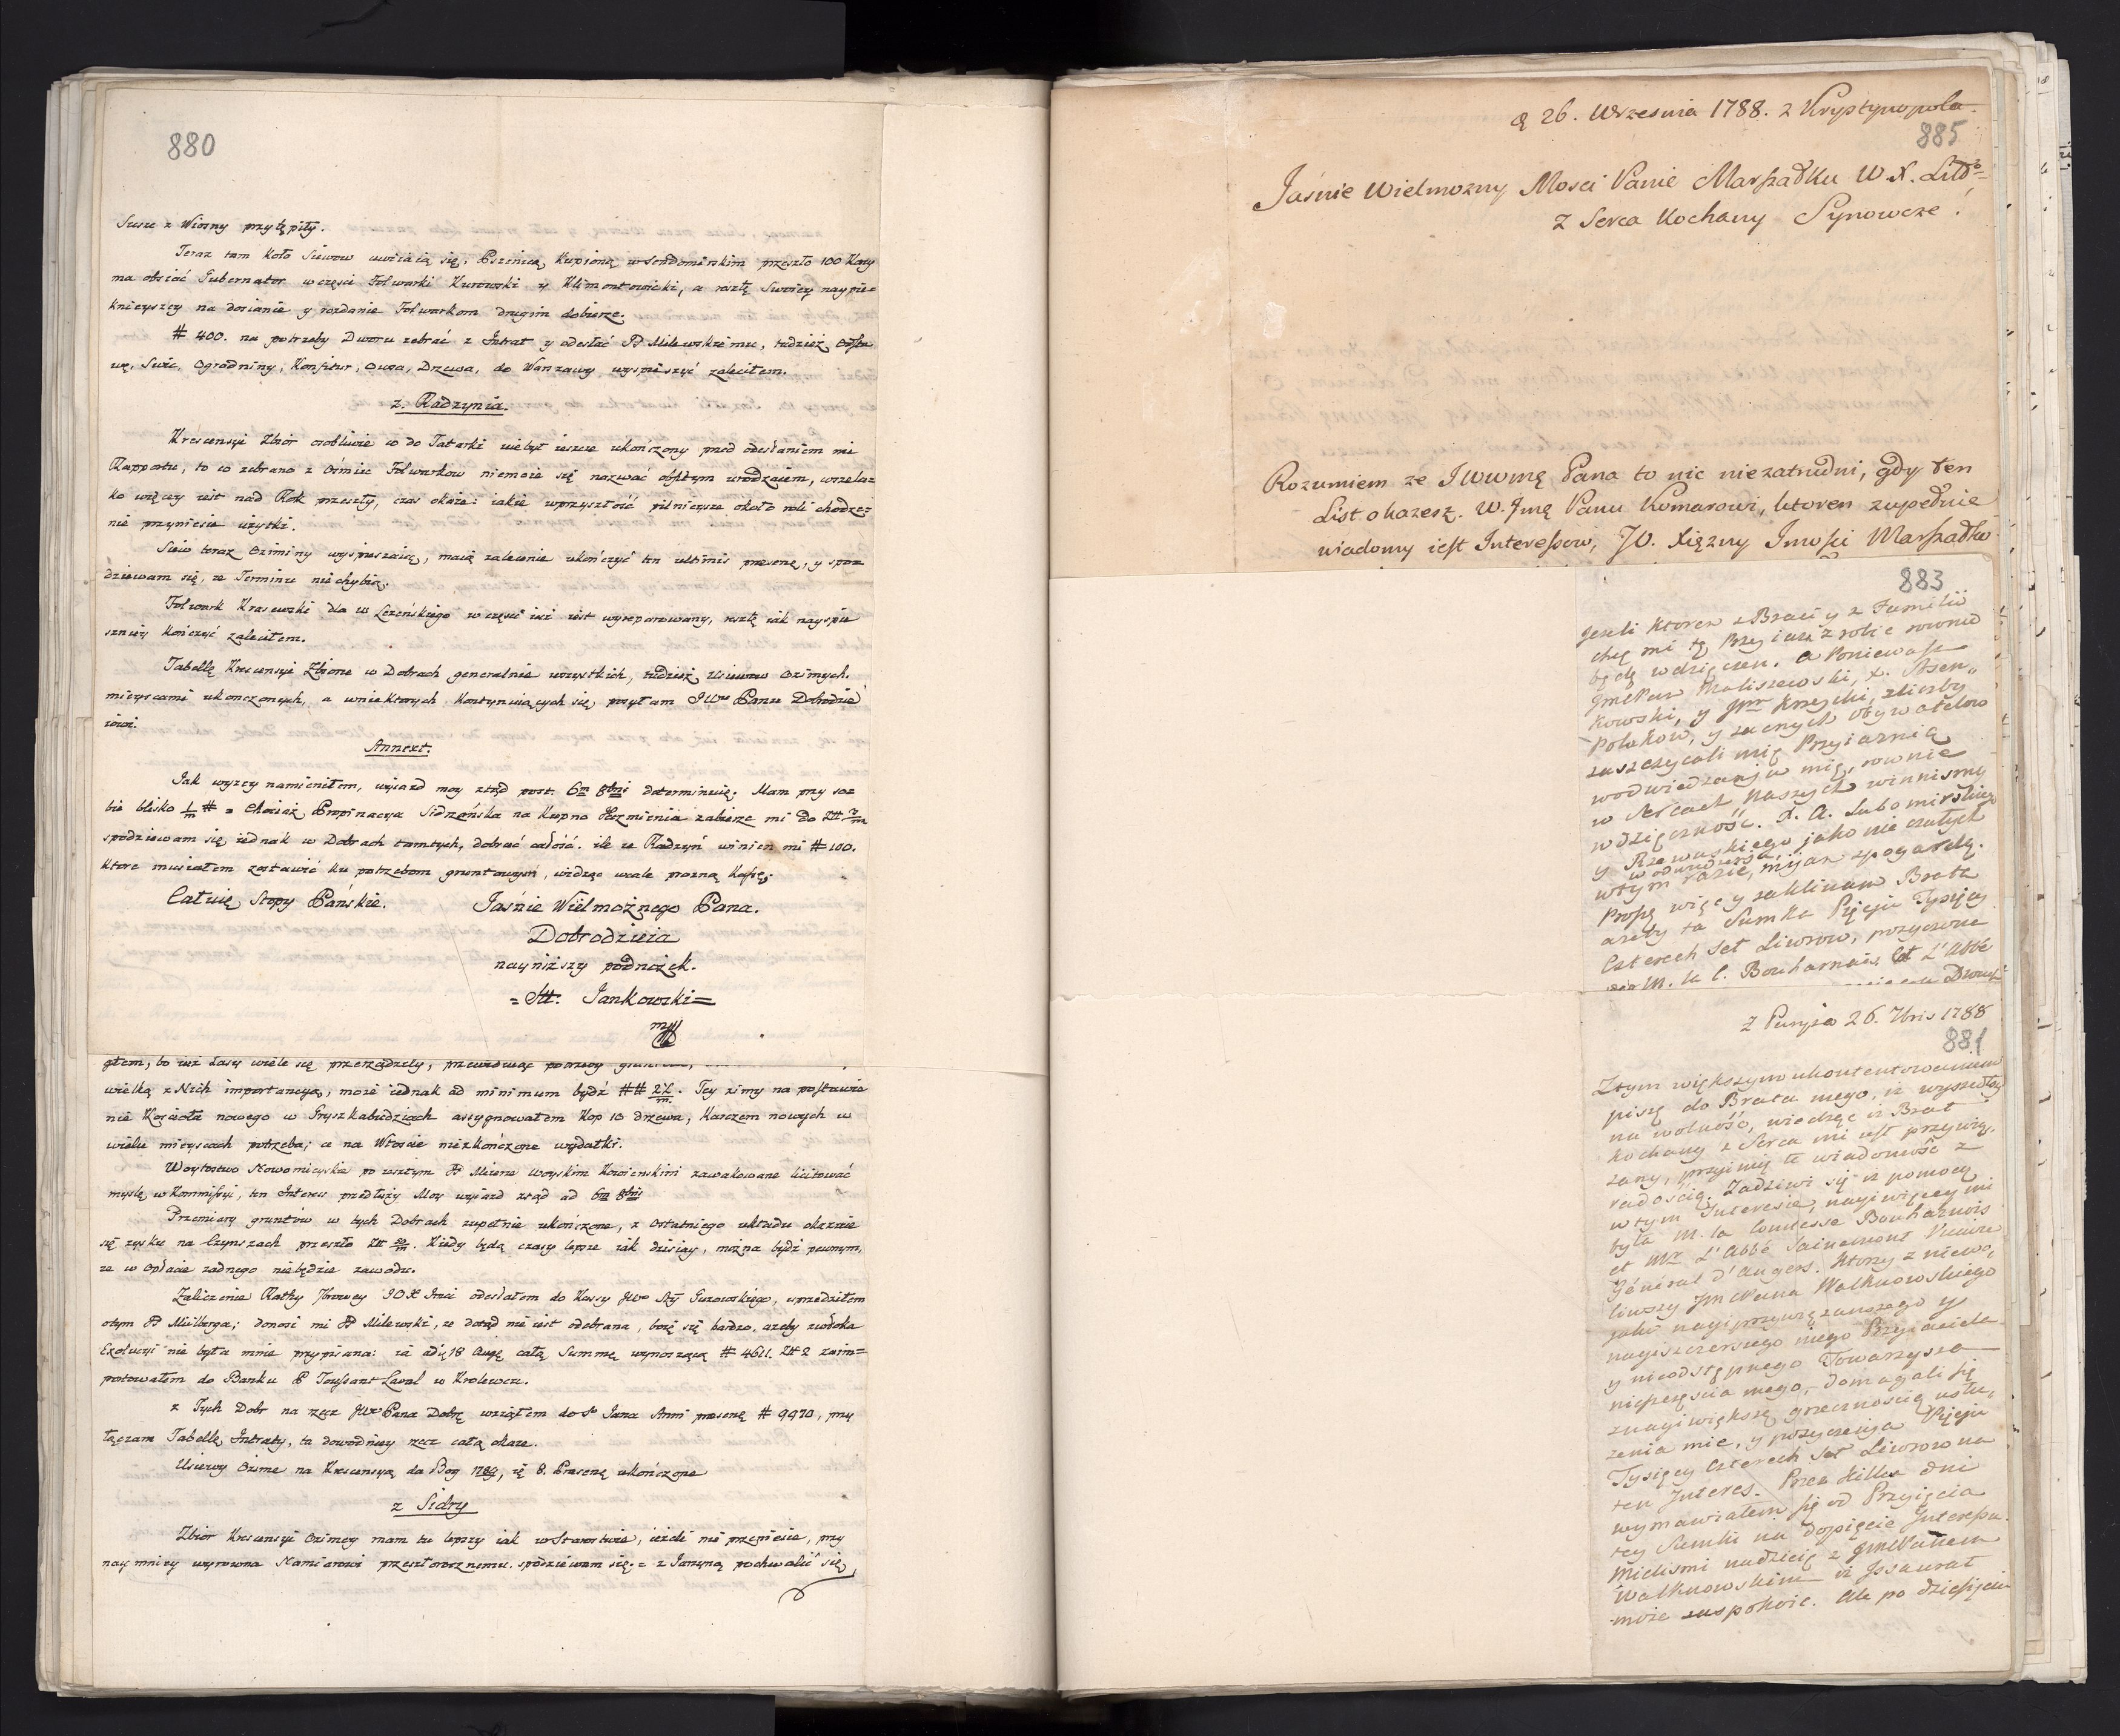 880
Susze z Wiosny przytępiły.
Teraz tam koło Siewow uwiiaią się, Pszenicą kupioną w Sendomirskim przeszło 100 Korcy
ma obsiać Gubernator w części Folwarki Kurowski y Klimontowicki, a resztę Swoiey naypię-
knieyszey na dosianie y rozdanie Folwarkom drugim dobierze.
# 400. na potrzeby Dworu zebrać z Intrat y odesłać JP Milewskiemu, tudzież
Ogrodniny, Konfitur, Owsa, Drzewa, do Warszawy wyspieszyć zaleciłem.
z. Radzynia.
Krescensyi Zbiór osobliwie co do Tatarki nie był ieszcze ukończony przed odesłaniem mi
Rapportu, to co zebrano z Ośmiu Folwarkow niemoże się nazwać obfitym urodzaiem, wszela-
ko więcey iest nad Rok przeszły, czas okaże: iakie w przyszłość pilnieysze około roli chodze-
nie przyniesie użytki.
Siew teraz Oziminy wyspieszaią, maią zalecenie ukończyć ten ultimis praesentis, y spo-
dziewam się, ze Terminu nie chybią.
Folwark Krasewski dla W Lezeńskiego w części iuż iest wyreparowany, resztę iak nayspie
szniey kończyć zaleciłem.
Tabellę Krescensyi Zbioru w Dobrach generalnie wszystkich, tudzież Usiewow Ozimych.
mieyscami ukończonych, a w niektorych kontynuiących się przyłam JWmu Panu Dobrodzie
iowi.
Annext.
Jak wyzey namieniłem, wyiazd moy ztąd post. 6m 8bris determinuię. Mam przy so-
bie blisko 1/m # = Chociaż Propinacya Sidrzańska na kupno Jęczmienia zabierze mi do
spodziewam się iednak w Dobrach tamtych, dobrać całość. ile ze Radzyń winien mi # 100.
ktore musiałem zostawić ku potrzebom gruntowym, widząc wcale prozną Kassę.
Całuię Stopy Pańskie. Jaśnie Wielmożnego Pana.
Dobrodzieia
nayniższy podnożek.
= Jankowski =
mp
głem, bo iuż Lasy wiele się przerzedzały, przewiduiąc potrzeby
wielką z Nich importancyą, może iednak ad minimum bydź ## 2/m. Tey zimy na postawie
nie Kościoła nowego w Gryszkabudziach assygnowałem Kop 10 drzewa, Karczem nowych w
wielu mieyscach potrzeba; a na Włoscie nieskończone wydatki.
Woytostwo Nowomieyskie po zeszłym JP Mirze Woyskim Kowienskim zawakowane licitować
myślę w Kommissyi, ten Interes przedłuży Moy wyiazd ztąd ad 6m 8bris
Przemiary gruntów w tych Dobrach zupełnie ukończone, z Ostatniego układu okazuie
się zysku na Czynszach przeszło. Kiedy będą czasy lepsze iak dzisiay, można bydź pewnym,
ze w Opłacie żadnego niebędzie zawodu.
Zaliczenie Ratty 7browey JOX Imci odesłałem do Kassy JWo Gurowskiego, uprzedziłem
otym JP Meilberga; donosi mi JP Milewski, ze dotąd nie iest odebrana, boię się bardzo, azeby zwłoka
Exolucyi nie była mnie przypisana: ia a dię 18 Augę całą Summę wynoszącą # 4611. Zł 2 zaim-
portowałem do Banku P Toussant Laval w Krolewcu.
z Tych Dobr na rzecz JWo Pana Dobrę wziąłem do So Jana Anni praesentę # 9970, przy
łączam Tabellę Intraty, ta dowodniey rzecz całą okaze.
Usiewy Ozime na Krescensyą da Bog 1789, dię 8. Praesentę ukończone
z Sidry
Zbior Krescensyi Ozimey mam tu lepszy iak w Starostwie, ieżeli nie przeniesie, przy
naymniey wyrowna Namiarowi przeszłorocznemu spodziewam się. = z Jarzyną pochwalić się
ą 26. Września 1788. z Krystynopola.
885
Jaśnie Wielmozny Mosci Panie Marszałku W. X. Litto
Z Serca Kochany Synowcze!
Rozumiem ze JWWmę Pana to nic niezatrudni, gdy ten
List okazesz. W. Jmę Panu Komarowi, ktoren zupełnie
wiadomy iest Interessow, JO. Xiężny Jmosci Marszałko
883
Jezeli ktoren z Braci y z Familii
chcę mi tę Przyiazń zrobic rownie
będę wdzięczen. a Poniewasz
JmcPan Maliszewski, X. Psen„
kowski, y Jmć Krzycki, zliczby
Polakow, y zacnych Obywatelow
zaszczycali mię Przyiaznią
wodwiedzaniu mię, rownie
w Sercach naszych winnismy
wdzięczność. X. A. Lubomirskiego
y Rzewuskiego jako nie czułych
w odwiedzeniu
wtym razie, mijam zpogardą.
Proszę więc y zaklinam Brata
azeby ta Sumka Pięciu Tysięcy
Czterech Set Liwrow, pozyczone
M. la C. Bouharnais et L'Abbé
Z Paryża 26. 7bris 1788
881
Ztym większym ukontentowaniem
piszę do Brata mego, iz wyszedłszy
na wolność, wiedząc iż Brat
kochany z Serca mi iest przywią-
zany, przyimie te wiadomość z
radością. Zadziwi się iż pomocą
wtym Interesie, naywięcey mi
była M. la Comtesse Bouharnois
et Mr L'Abbé Sainemont Vicaire
Général d'Angers. Ktorzy z niewo„
liwszy Jm Pana Walknowskiego
jako nayprzywiązanszego y
nayszczerszego mego Przyiaciela
y nieodstępnego Towarzysza
nieszczęscia mego, domagali się
znaywiększą grzecznością usłu„
zenia mie, y pozyczenia Pięciu
Tysięcy Czterech Set Liwrow na
ten Interes. Przez kilka dni
wymawiałem się od Przyięcia
tey Sumki na dopięcie Interessu.
Mielismi nadzieię z JmPanem
Walknowskim iż Jssaurat
może zaspokoic. Ale po dziesięciu